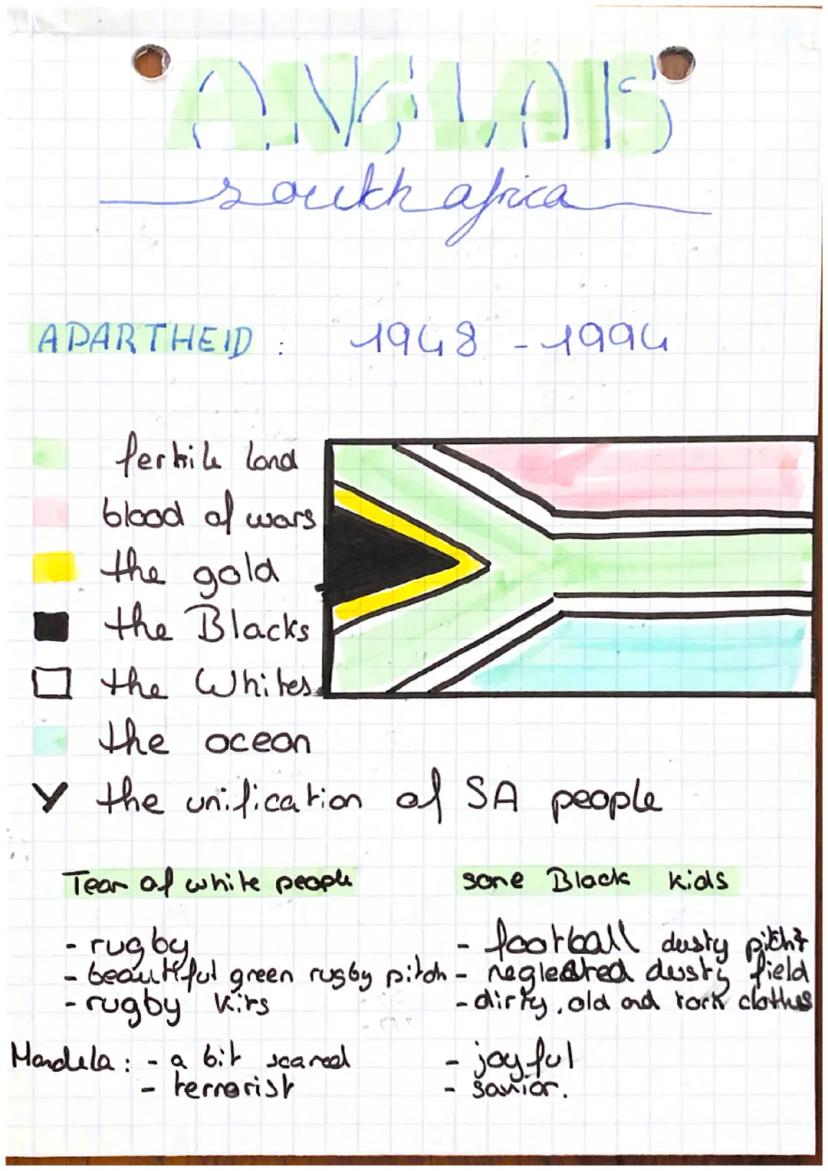 ANGLAIS
south africa
APARTHEID : 1948 - 1994
fertile land
blood of wars
the gold
the Blacks
the Whites
the ocean
Y the unification of SA people
Team of white people
- rugby
- beautiful green rugby pitch
- rugby kits
Mandela : - a bit scared
- terrorist
some Black kids
- football dusty pitch
- neglected dusty field
- dirty, old and torn clothes
- joyful
- savior.